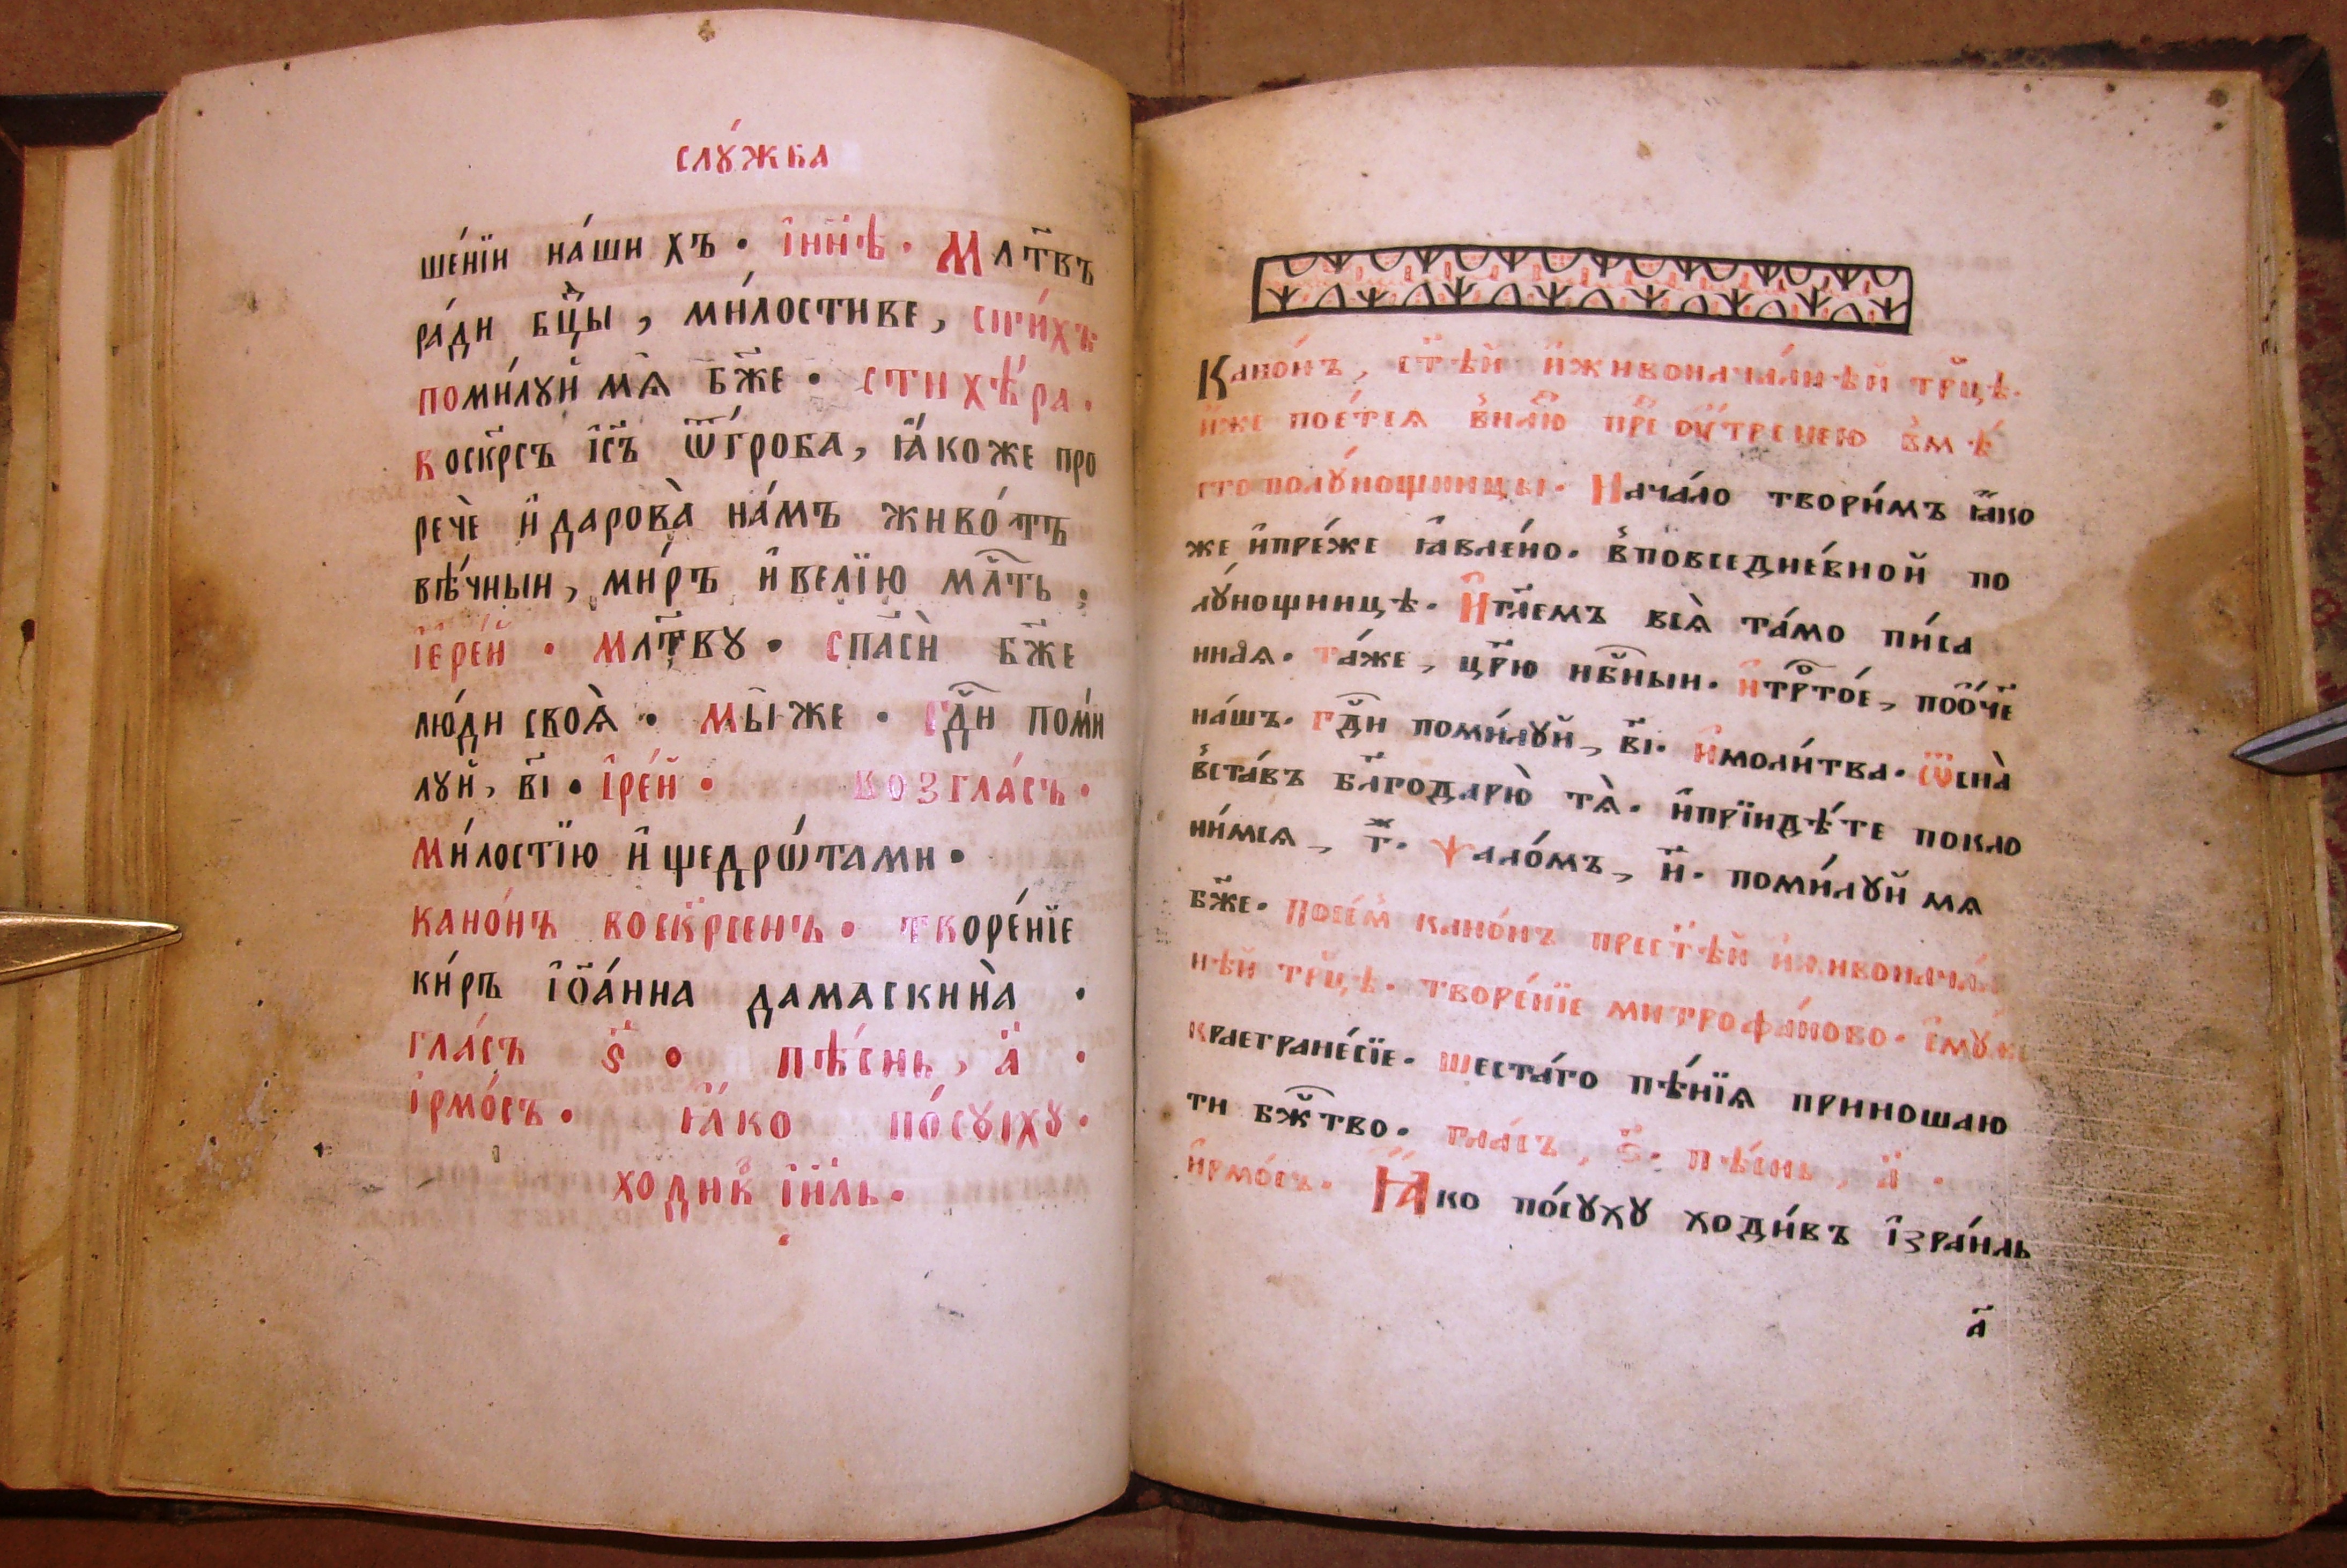 слꙋ́жба
ше́нїи на́шихъ • і҆нн҃ѣ • Мл҃твъ
ра́ди бц҃ы, ми́лостиве, сти́хъ
поми́лꙋй мѧ̀ бж҃е • стихѣ́ра •
воскр҃съ і҆с҃ъ ѿгро́ба, ꙗ҆́коже про
речѐ и҆дарова̀ на́мъ живо́тъ
вѣ́чныи, ми́ръ и҆велїю мл҃ть,
і҆ере́й • мл҃твꙋ • спасѝ бж҃е
лю́ди своѧ̀ • мы́же • гд҃и поми
лꙋй, в҃і • і҆ре́й • возгла́съ •
Ми́лостїю и҆щедрѡ́тами •
кано́нъ воскр҃сенъ • творе́нїе
ки́ръ і҆ѻа́нна дамаскина̀ •
гла́съ ѕ҃ • пѣ́снь, а҃ •
і҆рмо́съ • ꙗ҆́ко по́сꙋхꙋ •
ходив і҆и҃ль •
Кано́нъ, ст҃ѣй и҆живонача́лнѣй трⷪ҇цѣ.
и҆́же пое́тсѧ внл҃ю пре оу҆́тренею вмѣ́
сто полꙋ́нощницы. Нача́ло твори́мъ ꙗ҆́ко
же и҆пре́же ꙗ҆вле́но. впо́вседне́вной по
лꙋ́нощницѣ. И҆гл҃емъ всѧ̀ та́мо пи́са
ннаѧ. та́же, цр҃ю нб҃ныи. и҆трⷭ҇то́е, поо́ч҃е
на́шъ. гд҃и поми́лꙋй, в҃і. и҆моли́тва. ѿсна̀
вста́въ бл҃годарю̀ тѧ̀. и҆прїидѣ́те покло
ни́мсѧ, г҃ж. ѱало́мъ, н҃. поми́лꙋй мѧ
бж҃е. посе́м кано́нъ прест҃ѣй и҆живонача́л
нѣй трⷪ҇цѣ. творе́нїе митрофа́ново. є҆мꙋ́же
краегране́сїе. шеста́го пѣ́нїѧ приношаю
ти бж҃тво. гла́съ, ѕ҃. пѣ́снь, а҃ •
и҆рмо́съ. Ꙗ҆́ко по́сꙋхꙋ ходи́въ і҆зра́иль
а҃